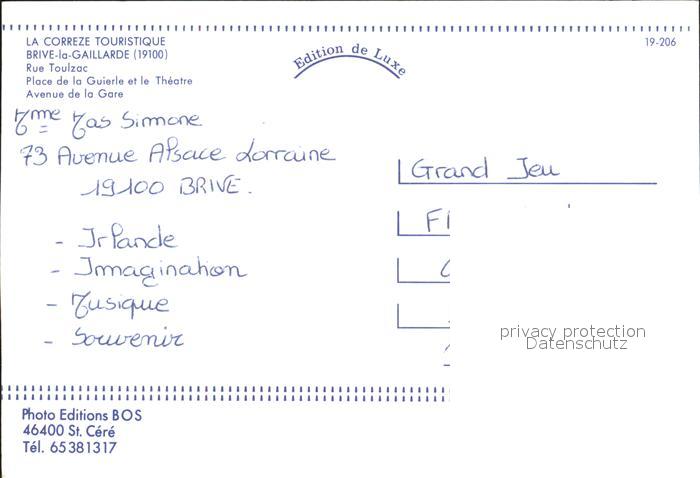 LA CORREZE TOURISTIQUE
BRIVE-la-GAILLARDE (19100)
Rue Toulzac
Place de la Guierle et le Théatre
Avenue de la Gare
19-206
Edition de Luxe
Mme Mas Simone
73 Avenue Alsace Lorraine
19100 BRIVE.
Grand Jeu
- Irlande
- Imagination
- Musique
- Souvenir
privacy protection
Datenschutz
Photo Editions BOS
46400 St. Céré
Tél. 65381317